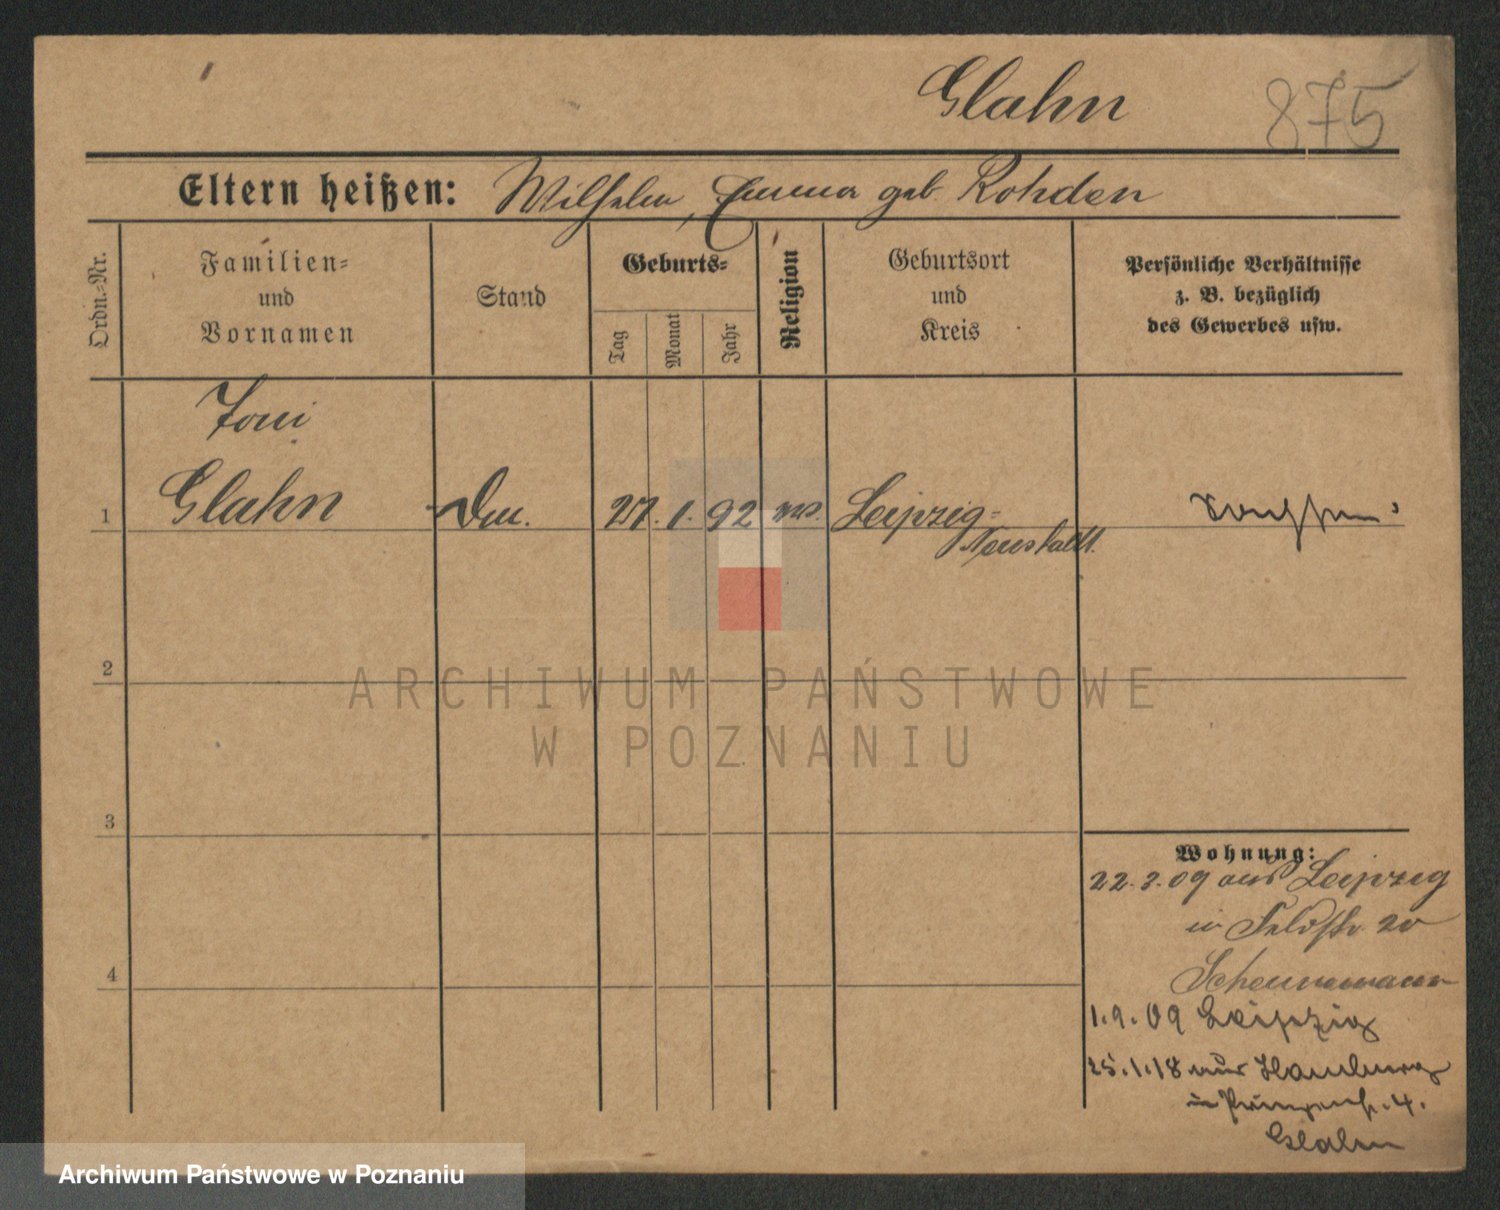 Glahn
875
Eltern heißen: Wilhelm, Emma geb. Rohden
Ordn.-Nr.
Familien-
und
Vornamen
Stand
Geburts-
Tag
Monat
Jahr
Religion
Geburtsort
und
Kreis
Persönliche Verhältnisse
z. B. bezüglich
des Gewerbes usw.
Toni
1 Glahn 27. 1. 92 Leipzig-
Neustadt.
2
3
4
Wohnung:
22.3.09 aus Leipzig
in Feldstr. 20
Scheunemann
1.9.09 Leipzig
25.1.18 aus Hamburg
in Prinzenstr. 4.
Glahn
ARCHIWUM PAŃSTWOWE
W POZNANIU
Archiwum Państwowe w Poznaniu